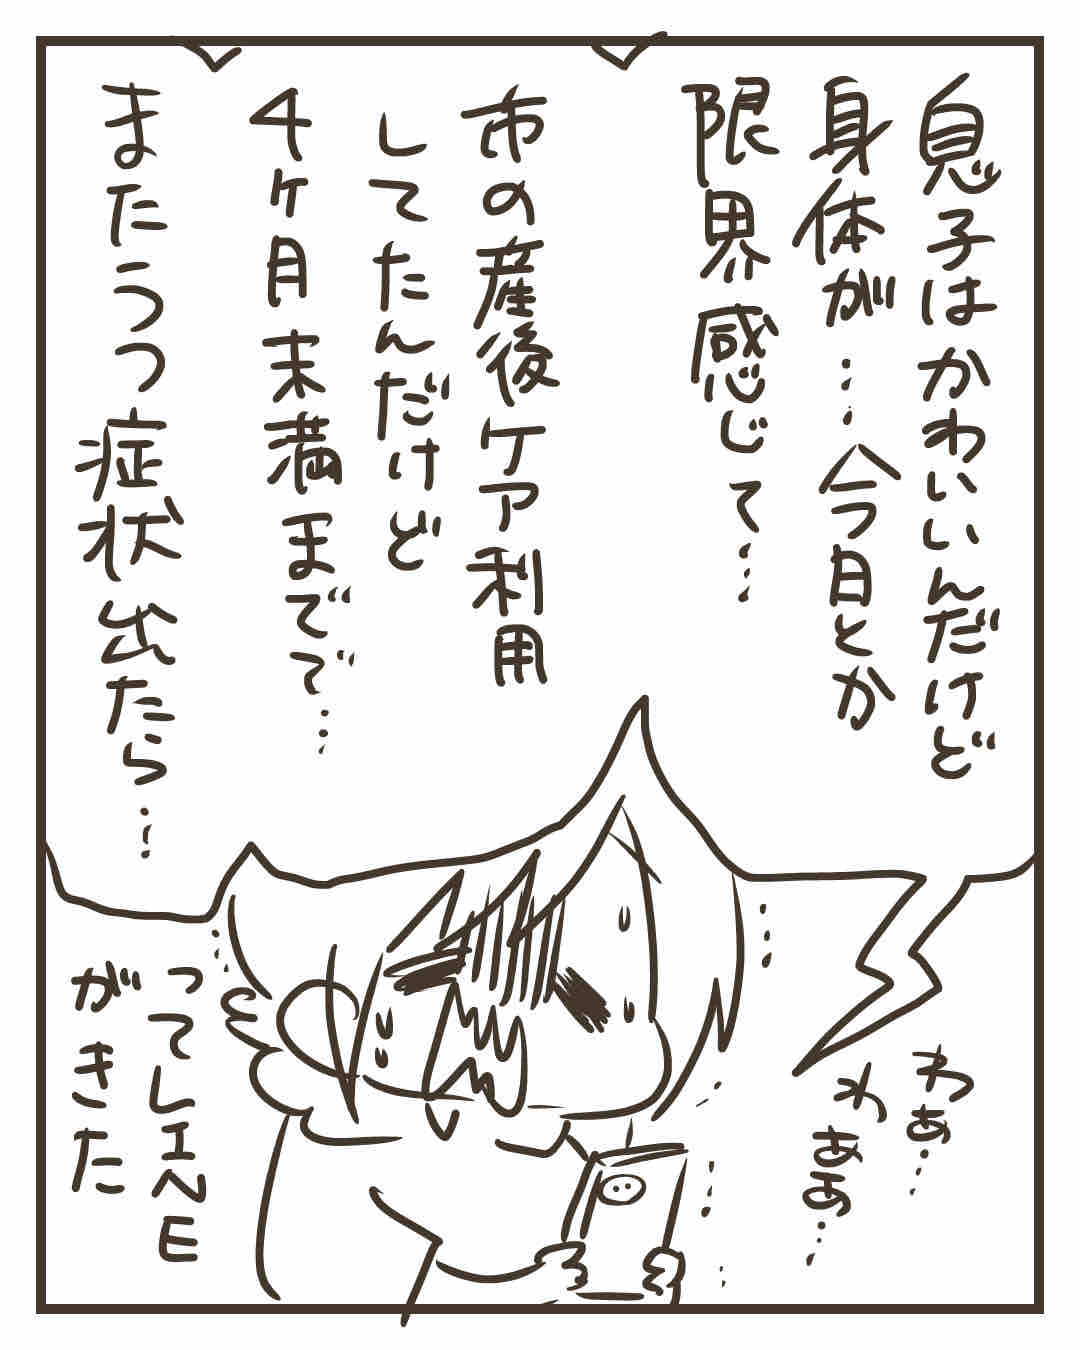 息子はかわいいんだけど
身体が…今日とか
限界感じて…
市の産後ケア利用
してたんだけど
4ヶ月末満までで…
またうつ症状出たら…
わぁ…
わぁあ…
ってLINE
がきた